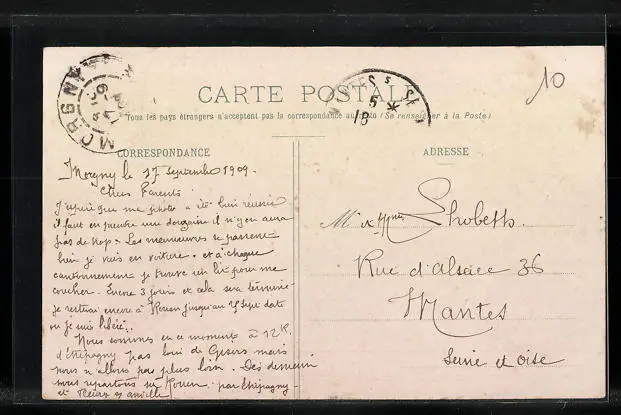 MORGNY
10
CARTE POSTALE
Tous les pays étrangers n'acceptent pas la correspondance au recto (Se renseigner à la Poste)
CORRESPONDANCE
ADRESSE
Morgny le 17 septembre 1909.
Chers Parents
J'espère que ma photo a été bien réussie
il faut en prendre une douzaine il n'y en aura
pas de trop. Les manœuvres se passent
bien je suis en voiture. et à chaque
cantonnement je trouve un lit pour me
coucher. Encore 3 jours et cela sera terminé
je resterai encore à Rouen jusqu'au Sept. date
où je suis libéré.
Nous sommes en ce moment à 12 K.
d'Etrépagny pas loin de Gisors mais
nous n'allons pas plus loin. Dès demain
nous repartons sur Rouen. par Etrépagny
et
Mr et Mme
Rue d'Alsace 36
Mantes
Seine et Oise